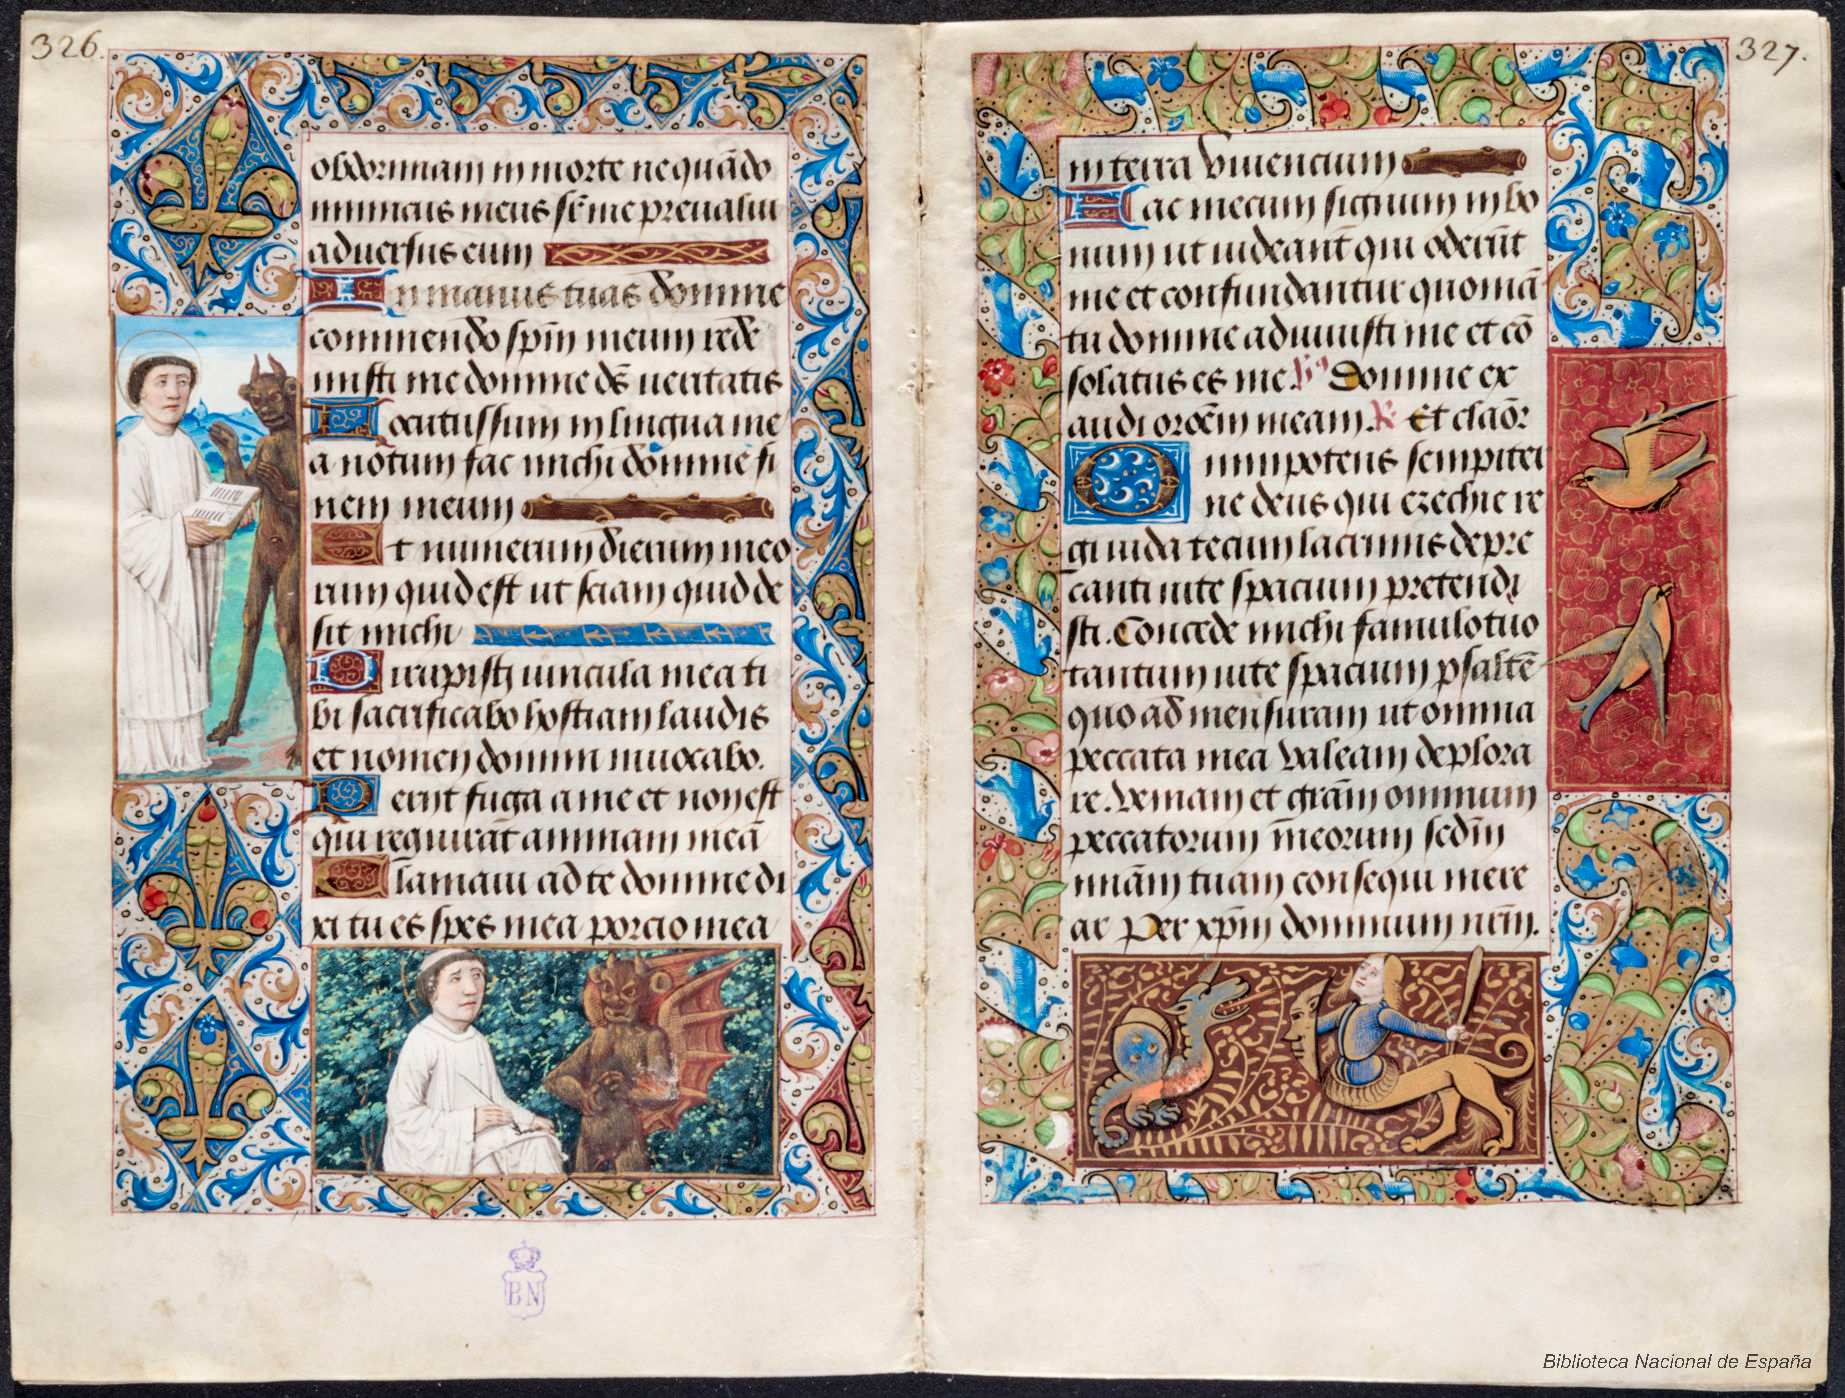 326.
obdormiam in morte nequãdo
inimicus meus di͂ me preualui
adversus eum
In manus tuas domine
commendo sp̃m meum rede
misti me domine de͂ veritatis
Locutus sum in lingua me
a notum fac michi domine fi
nem meum
Et numerum dierum meo
rum quid est ut sciam quid de
sit michi
Dirupisti vincula mea ti
bi sacrificabo hostiam laudis
et nomen domini invocabo.
Periit fuga a me et non est
qui requirãt animam meã
Clamavi ad te domine di
xi tu es spes mea porcio mea
BN
327.
in terra viventium
Fac mecum signum in bo
num ut videant̃ qui oderũt
me et confundantur quoniã
tu domine adiuvisti me et cõ
solatus es me. Domine ex
audi orõem meam. Et clãor
Omnipotens sempiter
ne deus qui ezechie re
gi iuda te cum lacrimis depre
canti vite spacium pretendi
sti. Concede michi famulo tuo
tantum vite spacium psaltẽ
quo ad mensuram ut omnia
peccata mea valeam deplora
re. Veniam et grãm omnium
peccatorum meorum sedm̃
miãm tuam consequi mere
ar Per xp̃m dominum nr̃m.
Biblioteca Nacional de España